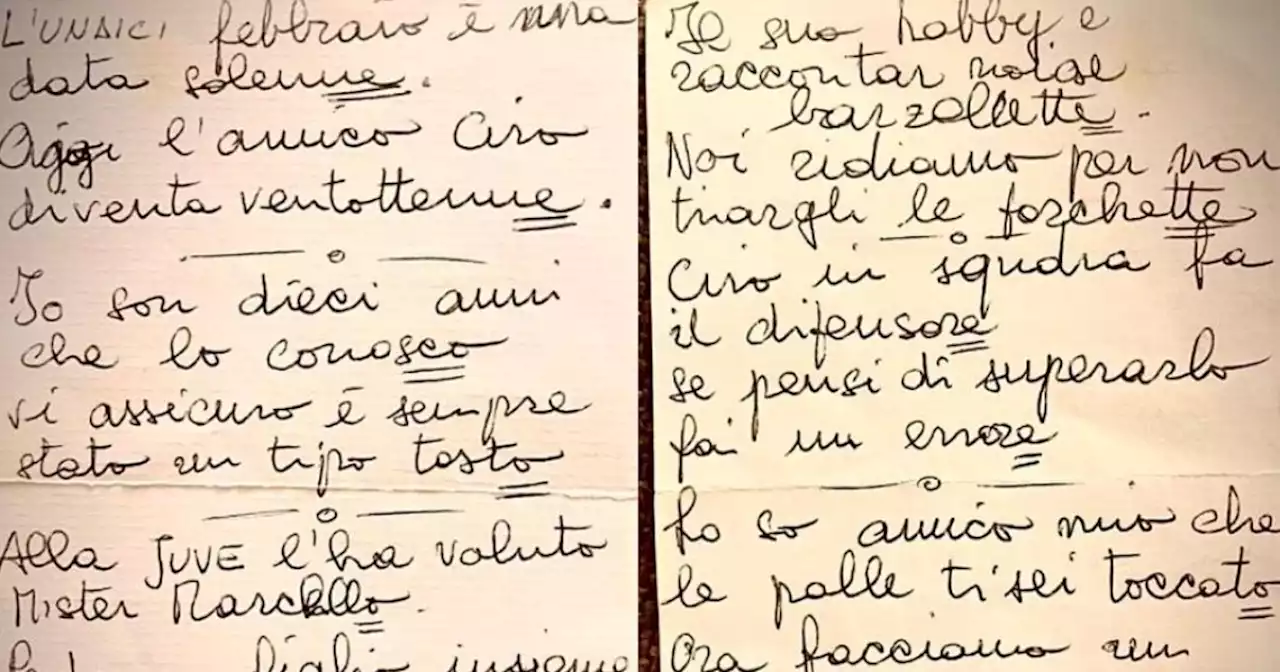 L'UNDICI febbraio è una
data solenne.
Oggi l'amico Ciro
diventa ventottenne.
Io son dieci anni
che lo conosco
vi assicuro è sempre
stato un tipo tosto
Alla JUVE l'ha voluto
Mister Marcello.
figlio insieme
Il suo hobby è
raccontar noiose
barzellette.
Noi ridiamo per non
tirargli le forchette
Ciro in squadra fa
il difensore
se pensi di superarlo
fai un errore
Lo so amico mio che
le palle ti sei toccato
Ora facciamo un